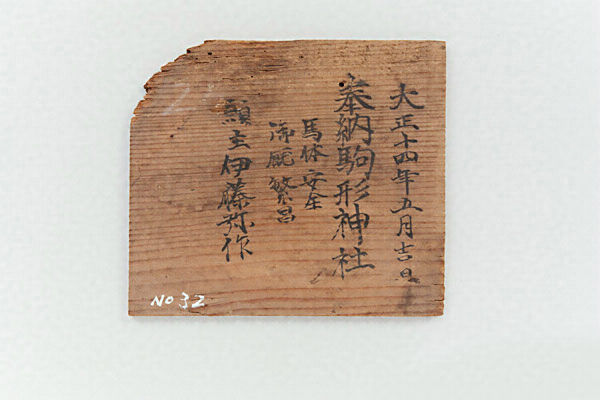 大正十四年五月吉日
奉納駒形神社
馬体安全
御厩繁昌
願主伊藤弥作
No 32